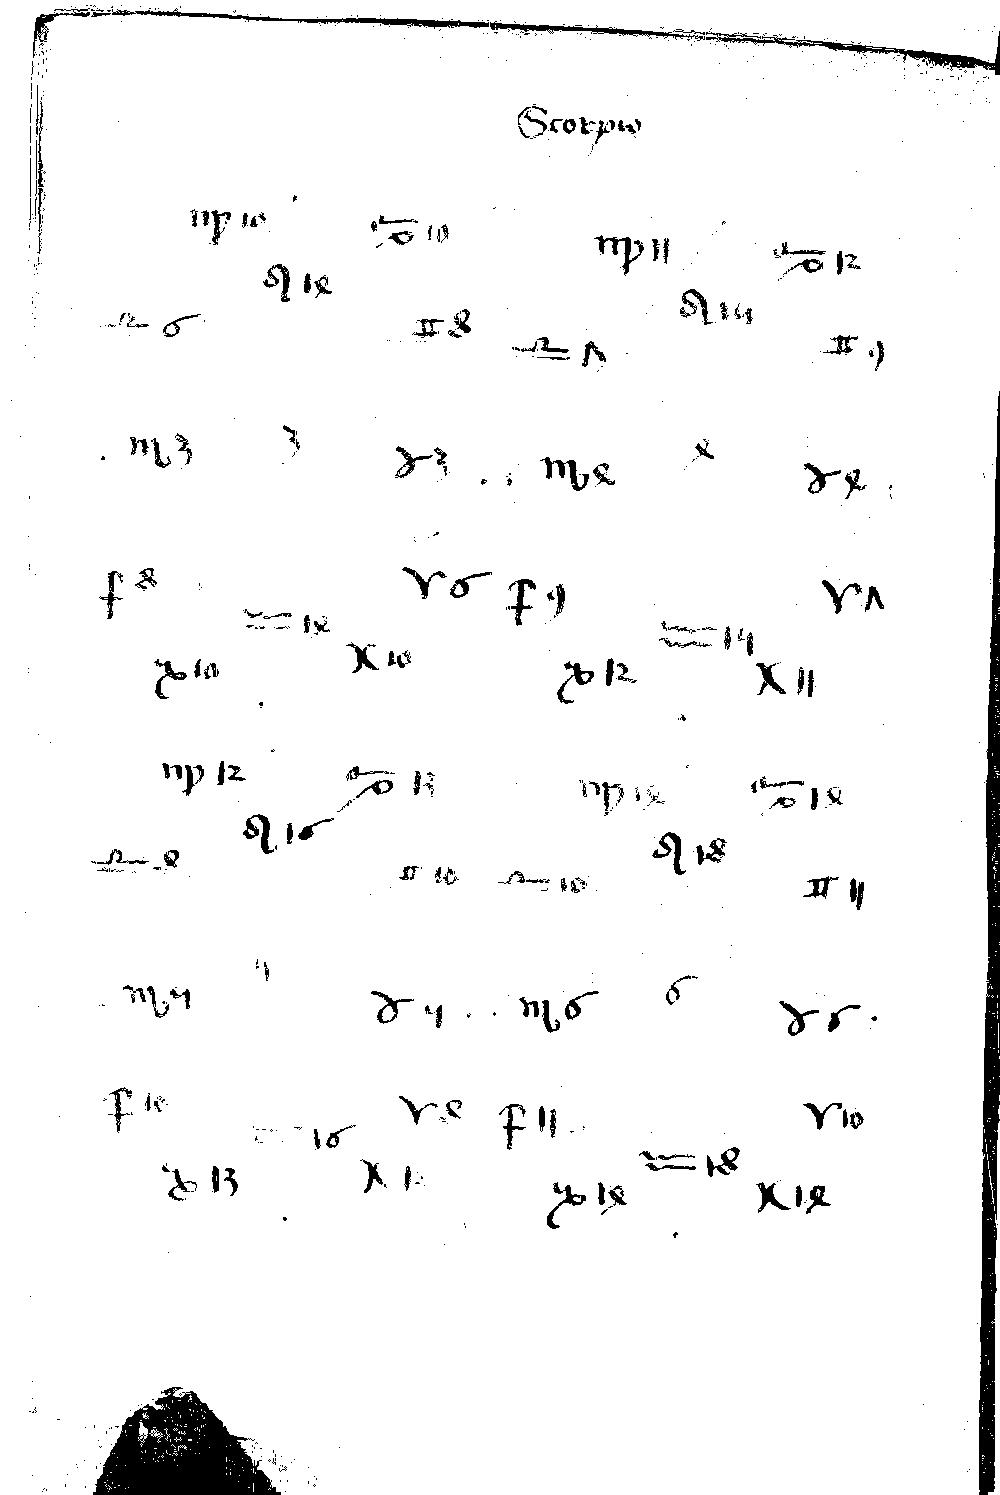 Scorpio
♍ 10 ♋ 10 ♍ 11 ♋ 12
♌ 14 ♌ 15
♎ 6 ♊ 8 ♎ 7 ♊ 9
♏ 3 3 ♉ 3 ♏ 4 4 ♉ 4
♐ 8 ♈ 6 ♐ 9 ♈ 7
♒ 14 ♒ 15
♑ 10 ♓ 10 ♑ 12 ♓ 11
♍ 12 ♋ 13 ♍ 14 ♋ 14
♌ 16 ♌ 18
♎ 8 ♊ 10 ♎ 10 ♊ 11
♏ 5 5 ♉ 5 ♏ 6 6 ♉ 6
♐ 10 ♈ 8 ♐ 11 ♈ 10
♒ 16 ♒ 18
♑ 13 ♓ ♑ 14 ♓ 14